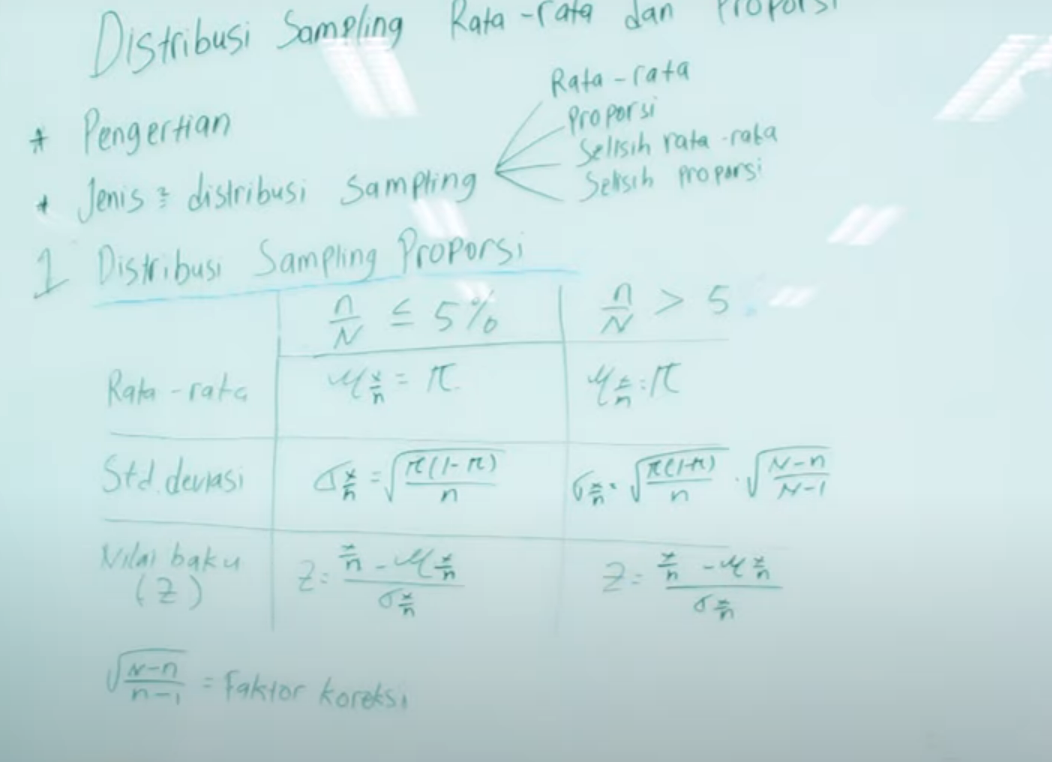 Distribusi Sampling Rata-rata dan Proporsi
* Pengertian
* Jenis² distribusi Sampling
Rata-rata
Proporsi
Selisih rata-rata
Selisih proporsi
1 Distribusi Sampling Proporsi
n/N ≤ 5% n/N > 5
Rata-rata μ x/n = π μ x/n = π
Std. deviasi σ x/n = √(π(1-π)/n) σ x/n = √(π(1-π)/n) . √(N-n/N-1)
Nilai baku (Z) Z = (x/n - μ x/n)/(σ x/n) Z = (x/n - μ x/n)/(σ x/n)
√(N-n/n-1) = Faktor koreksi